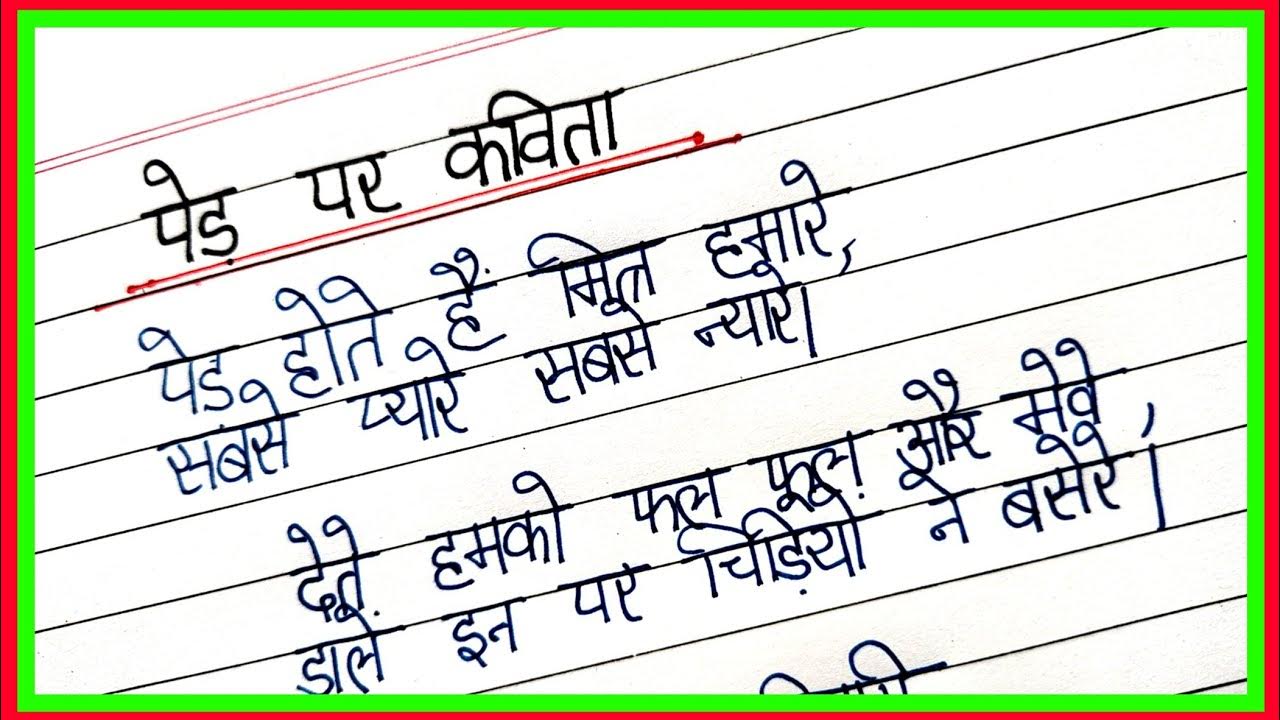 पेड़ पर कविता
पेड़ होते हैं मित्र हमारे,
सबसे प्यारे सबसे न्यारे।
देते हमको फल फूल और मेवे,
डाले इन पर चिड़ियो ने बसेरे।